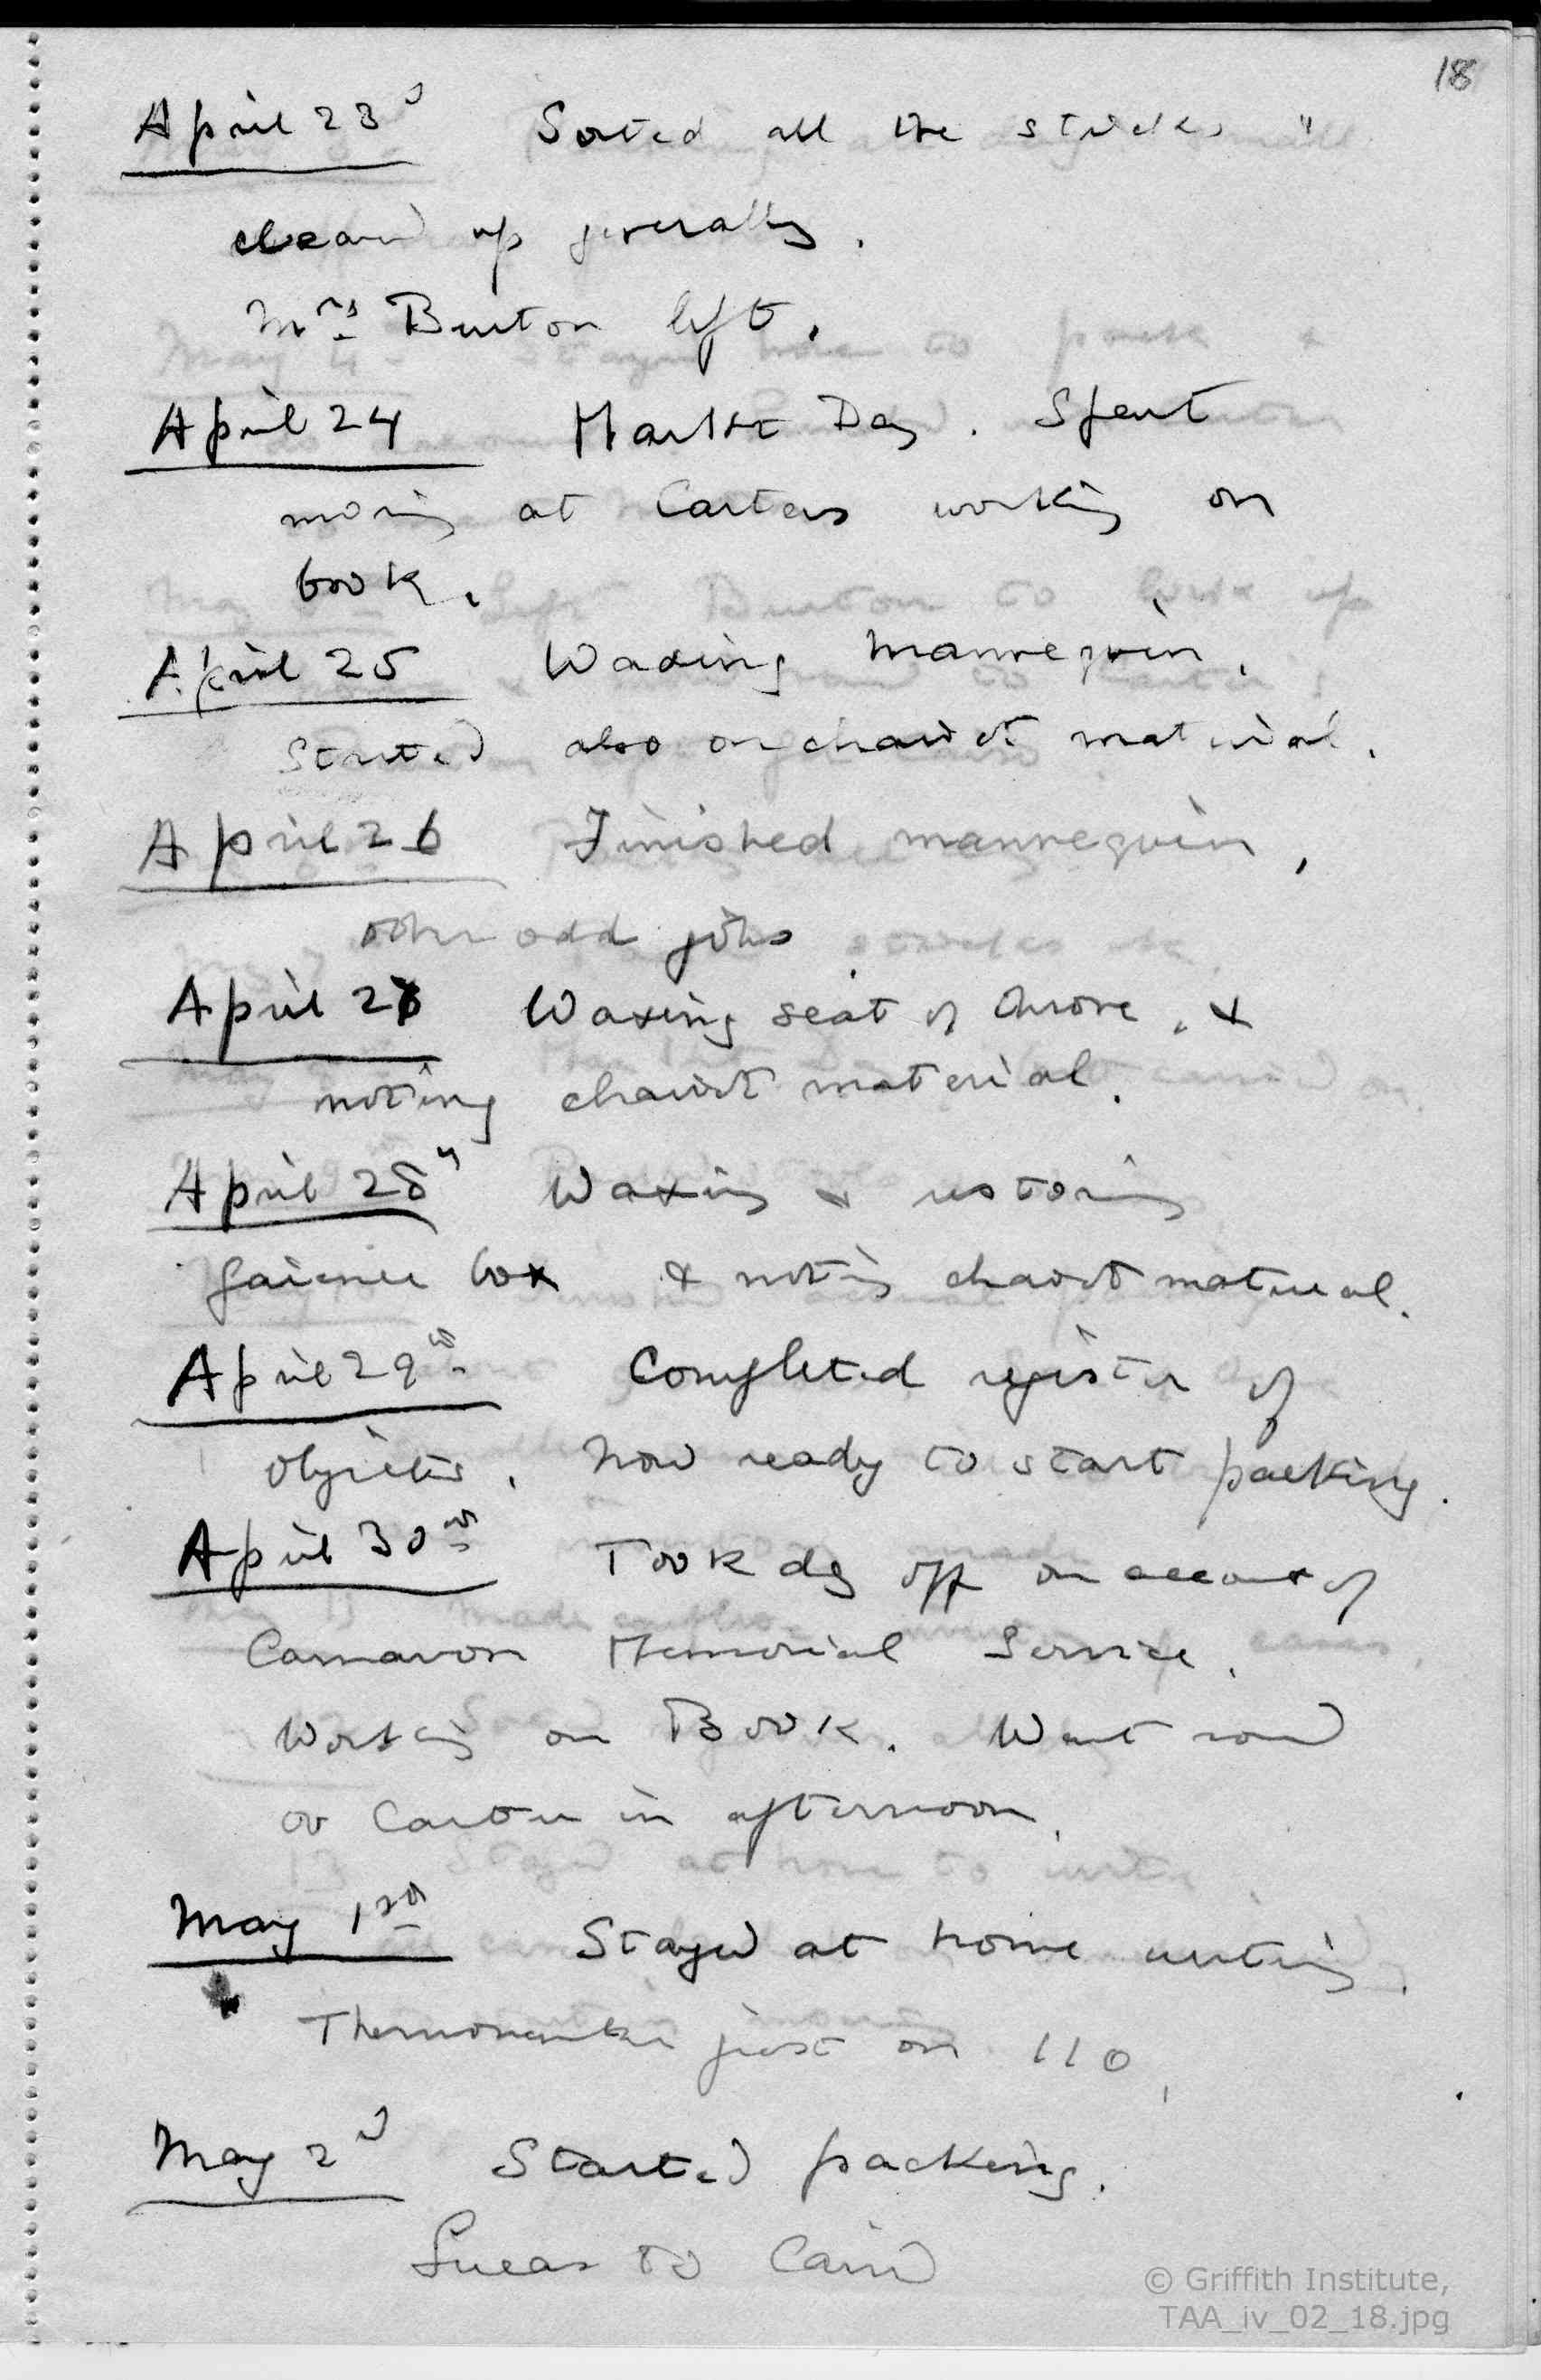 18
April 23d Sorted all the sticks &
cleared up generally.
Mrs Burton left.
April 24 Market Day. Spent
morning at Carters working on
book.
April 25 Waxing mannequin.
Started also on chariot material.
April 26 Finished mannequin,
other odd jobs
April 27 Waxing seat of throne, &
noting chariot material.
April 28th Waxing & restoring
faience box & noting chariot material.
April 29th Completed register of
objects. Now ready to start packing.
April 30th Took day off on account of
Carnarvon Memorial Service.
Working on Book. Went round
to Carter in afternoon.
May 1st Stayed at home writing.
Thermometer just on 110.
May 2d Started packing.
Lucas to Cairo
© Griffith Institute,
TAA_iv_02_18.jpg